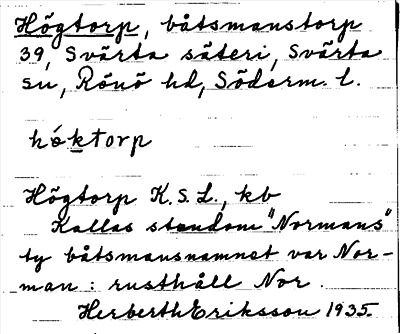 Högtorp, båtsmanstorp
39, Svärta säteri, Svärta
sn, Rönö hd, Söderm. l.
hö́ktorp
Högtorp K.S.L., kb
Kallas stundom "Normans"
ty båtsmansnamnet var Nor-
man : rusthåll Nor.
Herberth Eriksson 1935.